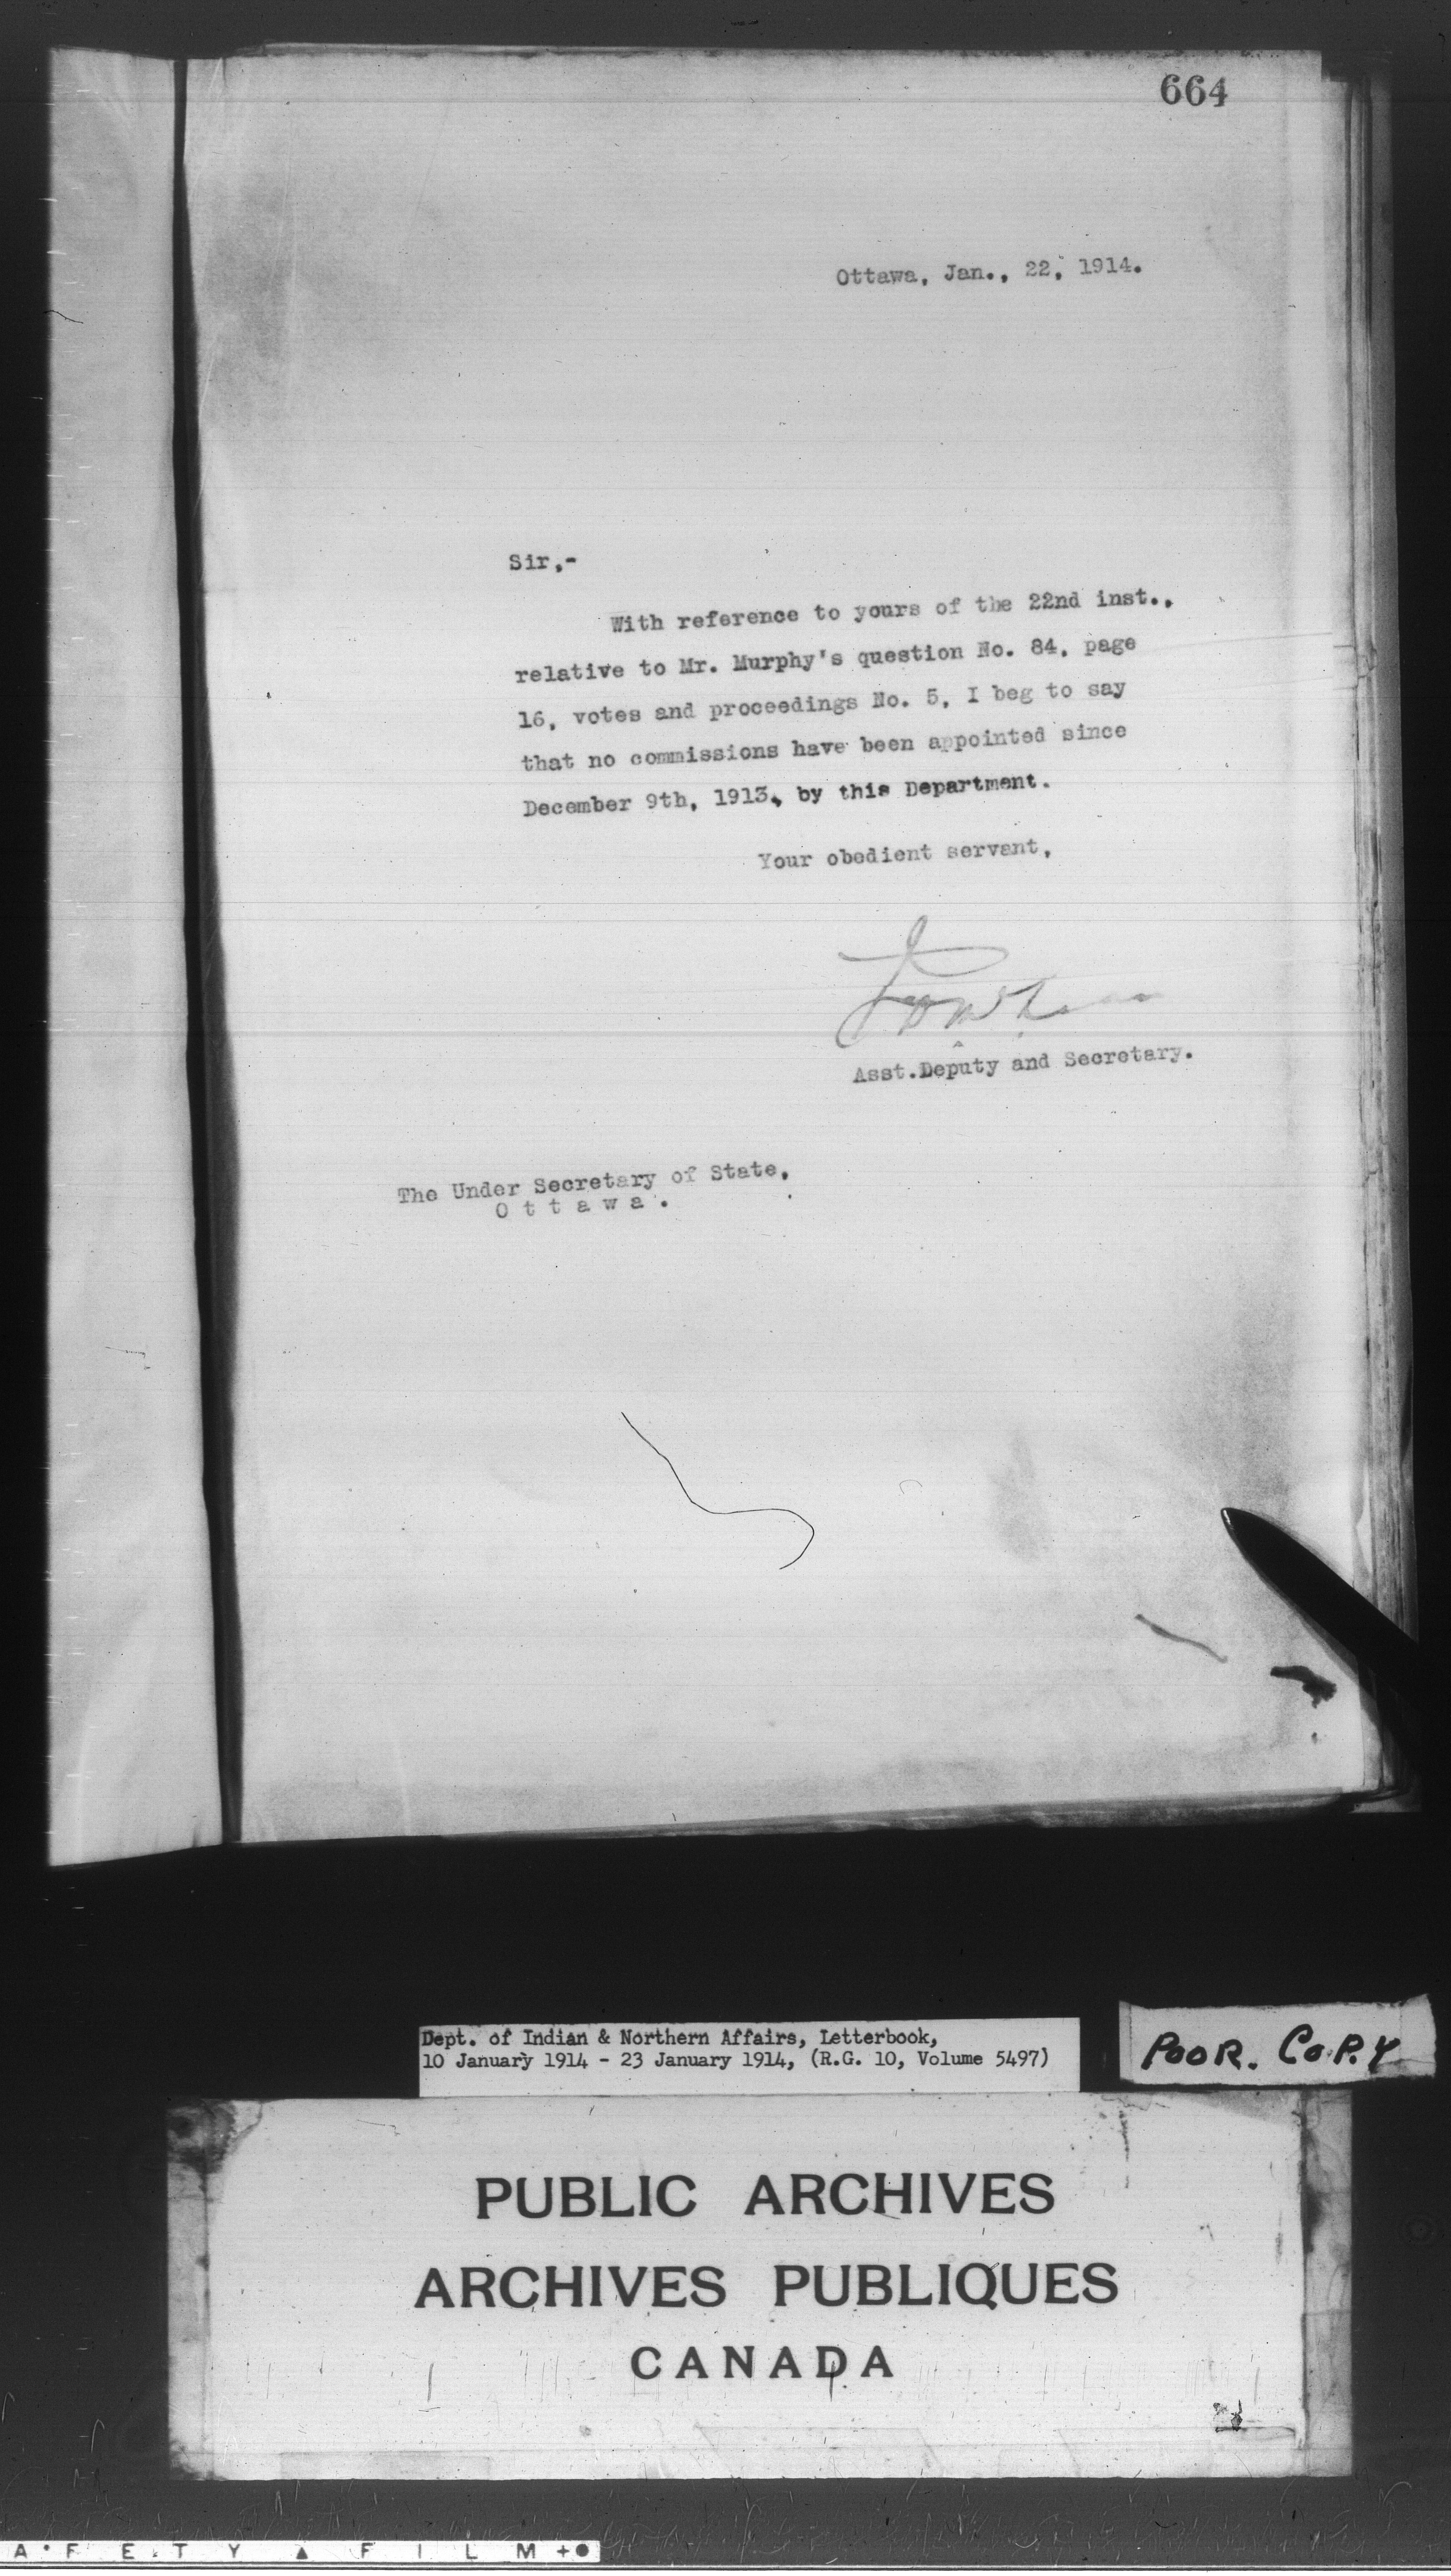 664
Ottawa, Jan., 22, 1914.
Sir,-
With reference to yours of the 22nd inst.,
relative to Mr. Murphy's question No. 84, page
16, votes and proceedings No. 5, I beg to say
that no commissions have been appointed since
December 9th, 1913, by this Department.
Your obedient servant,
Asst.Deputy and Secretary.
The Under Secretary of State,
Ottawa.
Dept. of Indian & Northern Affairs, Letterbook,
10 January 1914 - 23 January 1914, (R.G. 10, Volume 5497)
POOR. COPY
PUBLIC ARCHIVES
ARCHIVES PUBLIQUES
CANADA
AFETY ▲ FILM +●